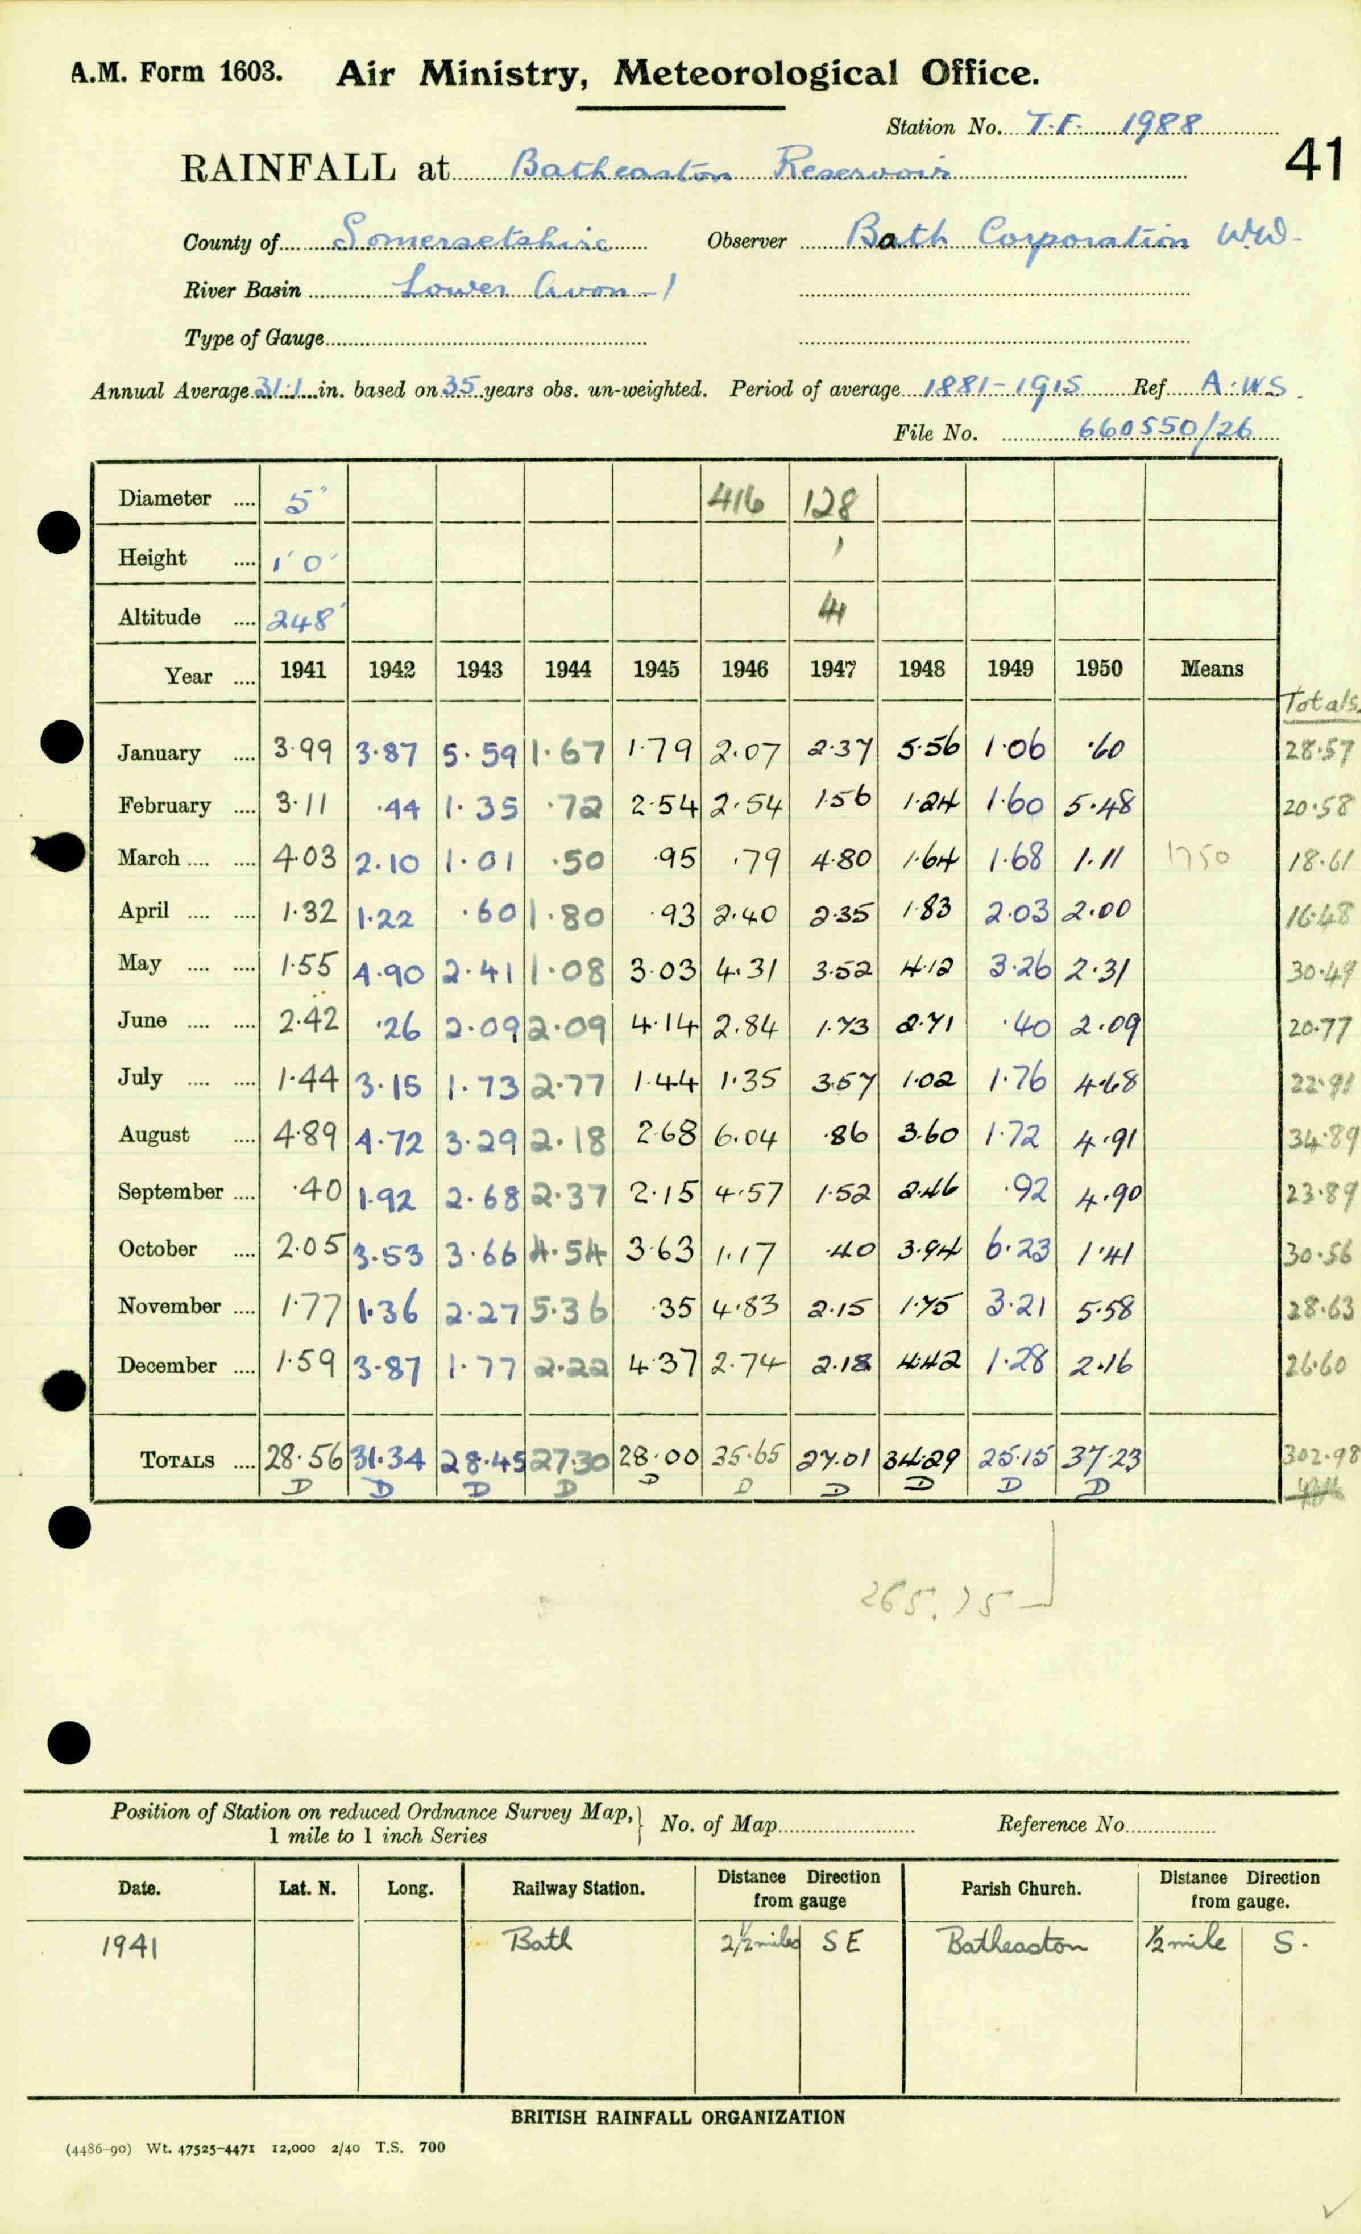 A.M. Form 1603. Air Ministry, Meteorological Office.
Station No. T.F. 1988
41
RAINFALL at Batheaston Reservoir
County of Somersetshire Observer Bath Corporation W.W.
River Basin Lower Avon - 1
Type of Gauge
Annual Average 31.1 in. based on 35 years obs. un-weighted. Period of average 1881-1915 Ref A.W.S.
File No. 660550/26
Diameter .... 5" 416 128
Height .... 1' 0" 1
Altitude .... 248'
Year .... 1941 1942 1943 1944 1945 1946 1947 1948 1949 1950 Means
Totals.
January .... 3.99 3.87 5.59 1.67 1.79 2.07 2.37 5.56 1.06 .60 28.57
February .... 3.11 .44 1.35 .72 2.54 2.54 1.56 1.24 1.60 5.48 20.58
March .... .... 4.03 2.10 1.01 .50 .95 .79 4.80 1.64 1.68 1.11 1750 18.61
April .... .... 1.32 1.22 .60 1.80 .93 2.40 2.35 1.83 2.03 2.00 16.48
May .... .... 1.55 4.90 2.41 1.08 3.03 4.31 3.52 4.12 3.26 2.31 30.49
June .... .... 2.42 .26 2.09 2.09 4.14 2.84 1.73 2.71 .40 2.09 20.77
July .... .... 1.44 3.15 1.73 2.77 1.44 1.35 3.57 1.02 1.76 4.68 22.91
August .... 4.89 4.72 3.29 2.18 2.68 6.04 .86 3.60 1.72 4.91 34.89
September .... .40 1.92 2.68 2.37 2.15 4.57 1.52 2.46 .92 4.90 23.89
October .... 2.05 3.53 3.66 4.54 3.63 1.17 .40 3.94 6.23 1.41 30.56
November .... 1.77 1.36 2.27 5.36 .35 4.83 2.15 1.75 3.21 5.58 28.63
December .... 1.59 3.87 1.77 2.22 4.37 2.74 2.18 4.42 1.28 2.16 26.60
TOTALS .... 28.56 31.34 28.45 27.30 28.00 35.65 27.01 34.29 25.15 37.23 302.98
D D D D D D D D D D
265.75
Position of Station on reduced Ordnance Survey Map, } No. of Map Reference No.
1 mile to 1 inch Series
Date. Lat. N. Long. Railway Station. Distance Direction from gauge Parish Church. Distance Direction from gauge.
1941 Bath 2½ miles S E Batheaston ½ mile S.
BRITISH RAINFALL ORGANIZATION
(4486-90) Wt. 47525-4471 12,000 2/40 T.S. 700